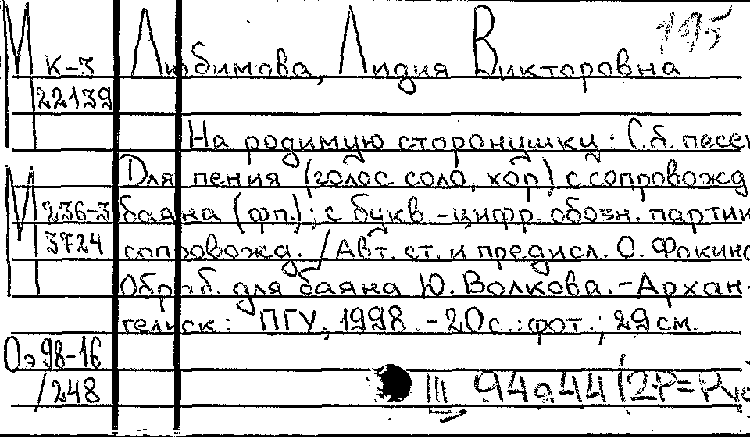 195
М К-3 Любимова, Лидия Викторовна
22139
На родимую сторонушку: Сб. песен
Для пения (голос соло, хор) с сопровожд
М 236-3 баяна (фп.); с букв.-цифр. обозн. партии
3724 сопровожд. / Авт. ст. и предисл. О. Фокина
Обраб. для баяна Ю. Волкова.-Архан-
гельск: ПГУ, 1998.-20с.:фот.; 29см.
Оэ 98-16
/248 III 94а44(2Р=Рус